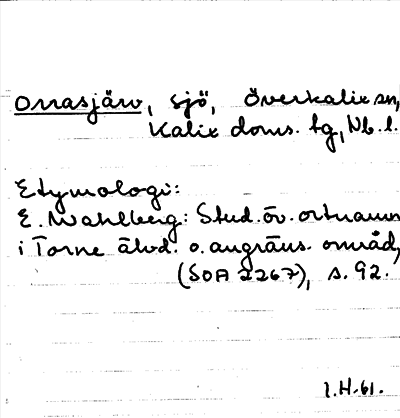 Orrasjärv, sjö, Överkalix sn,
Kalix doms. tg, Nb. l.
Etymologi:
E. Wahlberg: Stud. öv. ortnamn
i Torne älvd. o. angräns. områd,
(SOA 2267), s. 92.
I.H.61.